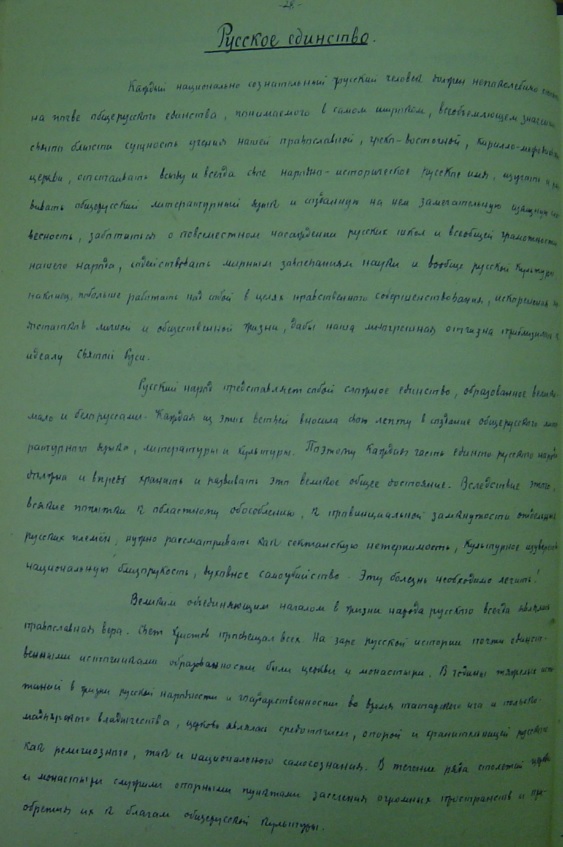 -28-
Русское единство.
Каждый национально сознательный русский человек должен непоколебимо стоять
на почве общерусского единства, понимаемого в самом широком, всеобъемлющем значении,
свято блюсти сущность учения нашей православной, греко-восточной, Кирилло-мефодиевской
церкви, отстаивать всюду и всегда свое народно-историческое русское имя, изучать и раз-
вивать общерусский литературный язык и созданную на нем замечательную изящную сло-
весность, заботиться о повсеместном насаждении русских школ и всеобщей грамотности
нашего народа, содействовать мирным завоеваниям науки и вообще русской культуры
наконец, побольше работать над собой в целях нравственного совершенствования, искоренения не-
достатков личной и общественной жизни, дабы наша многогрешная отчизна приблизилась к
идеалу Святой Руси.
Русский народ представляет собой стройное единство, образованное велико-
мало и белоруссами. Каждая из этих ветвей вносила свою лепту в создание общерусского лите-
ратурного языка, литературы и культуры. Поэтому каждая часть единого русского народа
должна и впредь хранить и развивать это великое общее достояние. Вследствие этого,
всякие попытки к областному обособлению, к провинциальной замкнутости отдельных
русских племен, нужно рассматривать как сектантскую нетерпимость, культурное изуверство
национальную близорукость, духовное самоубийство. Эту болезнь необходимо лечить!
Великим объединяющим началом в жизни народа русского всегда являлась
православная вера. Свет Христов просвещал всех. На заре русской истории почти единст-
венными источниками образованности были церкви и монастыри. В годины тяжелых испы-
таний в жизни русской народности и государственности во время татарского ига и польско-
мадьярского владычества, церковь являлась средоточием, опорой и хранительницей русского
как религиозного, так и национального самосознания. В течение ряда столетий церкви
и монастыри служили опорными пунктами заселения огромных пространств и при-
обретения их к благам общерусской культуры.